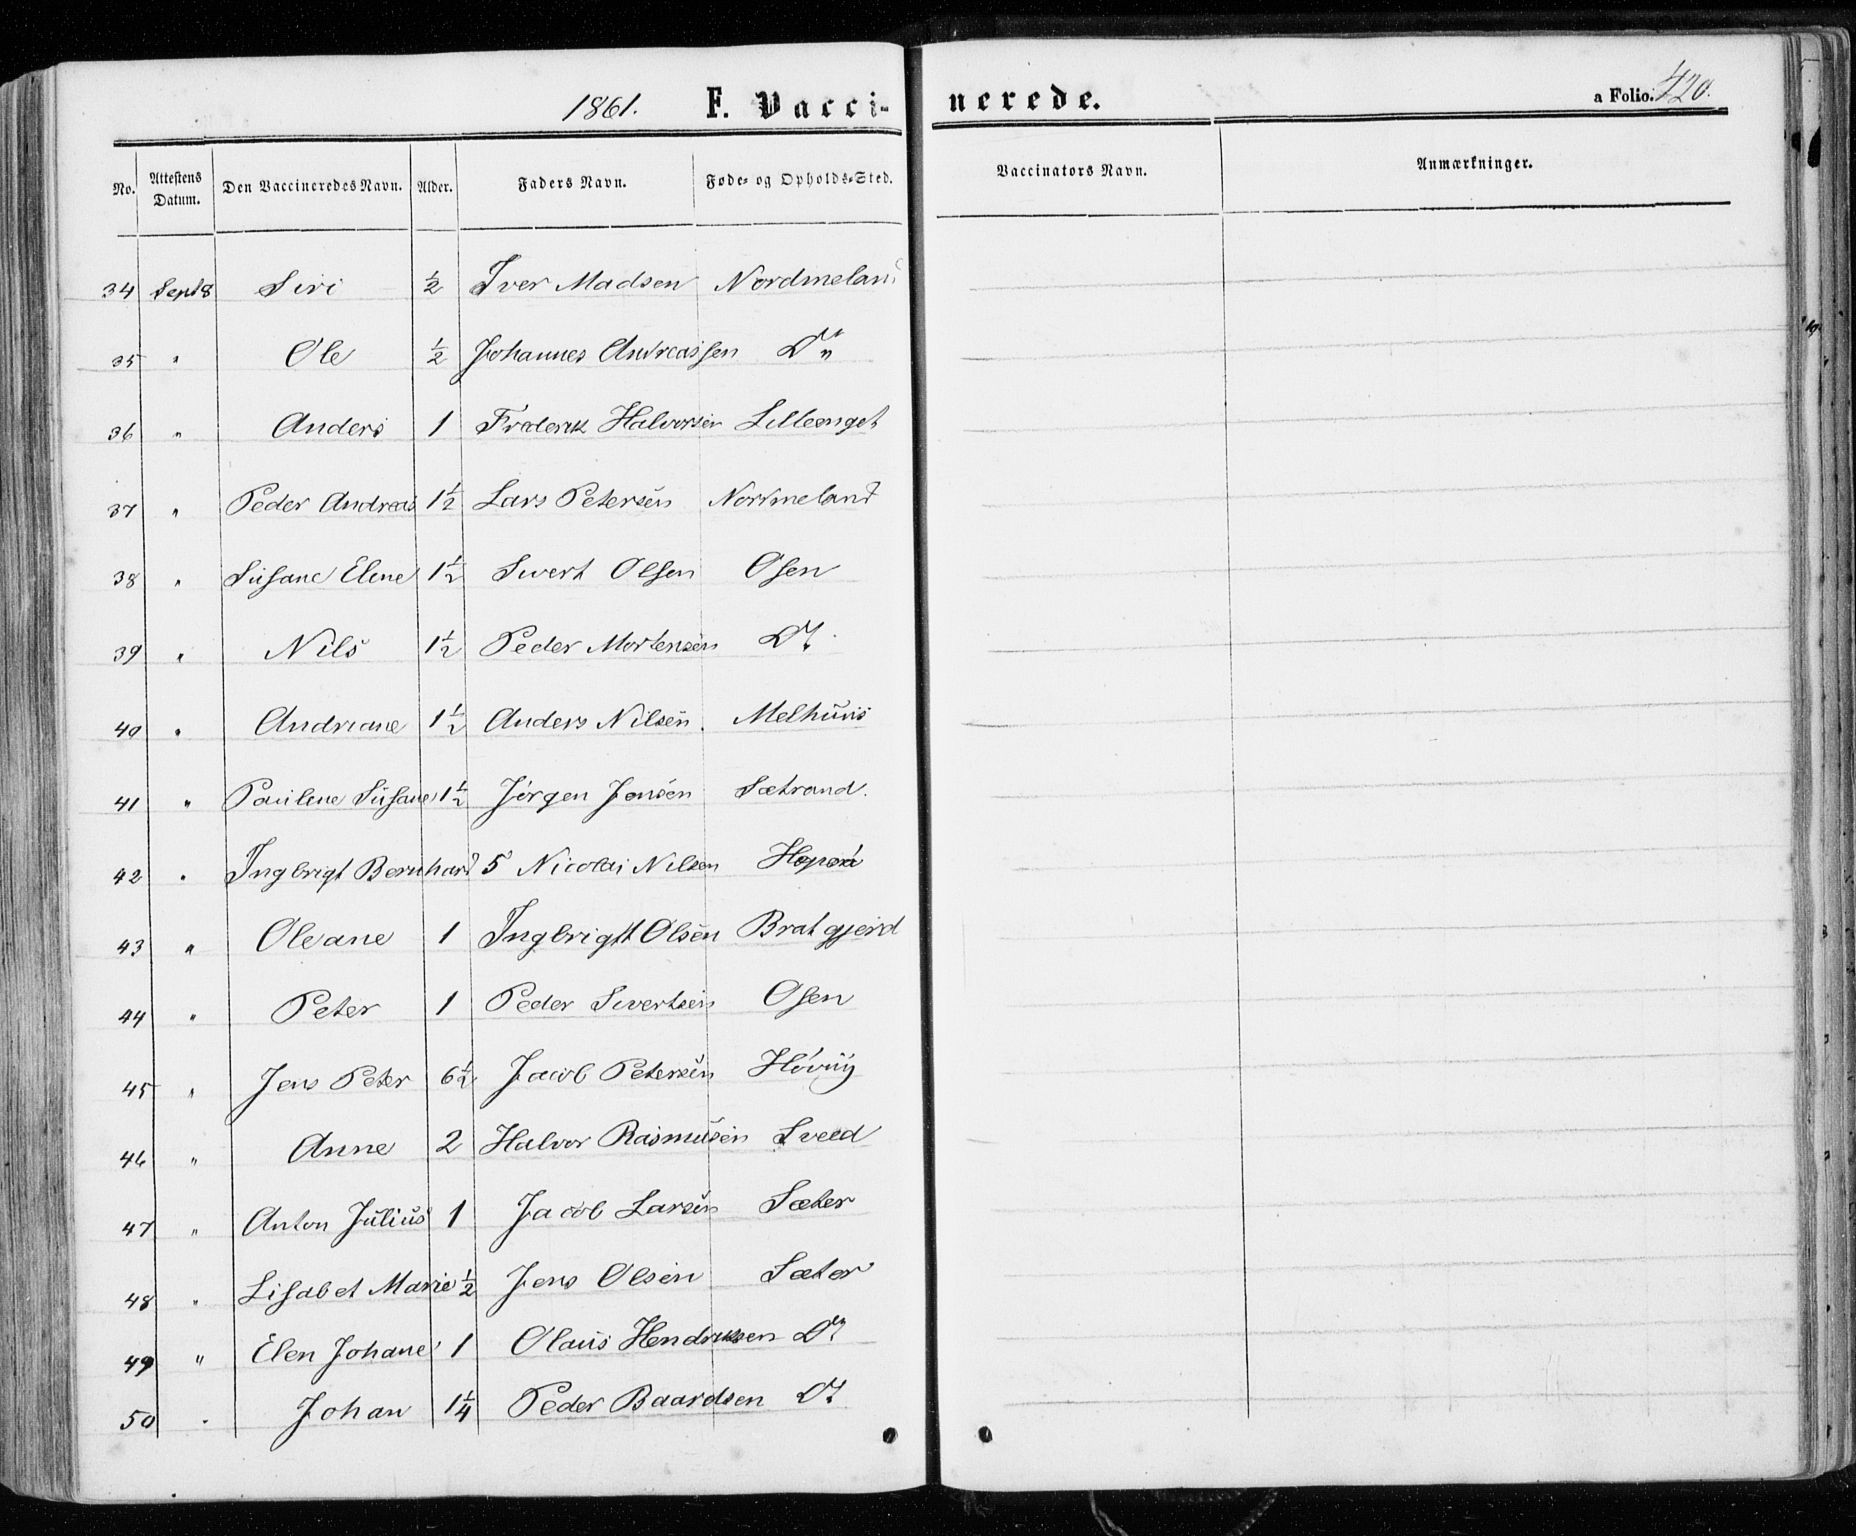 1861. F. Vacci- nerede. a Folio. 420.
No. Attestens Datum. Den Vaccineredes Navn. Alder. Faders Navn. Føde- og Opholds-Sted. Vaccinators Navn. Anmærkninger.
34 Sept 8 Siri ½ Iver Madsen Nordmeland
35 " Ole ½ Johannes Andreassen Do
36 " Anders 1 Frederik Halvorsen Lilleenget
37 " Peder Andreas 1½ Lars Petersen Nordmeland
38 " Susane Elene 1½ Sivert Olsen Osen
39 " Nils 1½ Peder Mortensen Do
40 " Andriane 1½ Anders Nilsen Melhuus
41 " Pauline Susane 1½ Jörgen Jensen Sætrand.
42 " Ingbrigt Bernhard 5 Nicolai Nilsen
43 " Oleane 1 Ingbrigt Olsen Bratgjerd
44 " Peter 1 Peder Sivertsen Osen
45 " Jens Peter 6½ Jacob Petersen
46 " Anne 2 Halvor Rasmusen Sveed
47 " Anton Julius 1 Jacob Larsen Sæter
48 " Lisabet Marie ½ Jens Olsen Sæter
49 " Elen Johane 1 Olaus Hendriksen Do
50 " Johan 1¼ Peder Baardsen Do